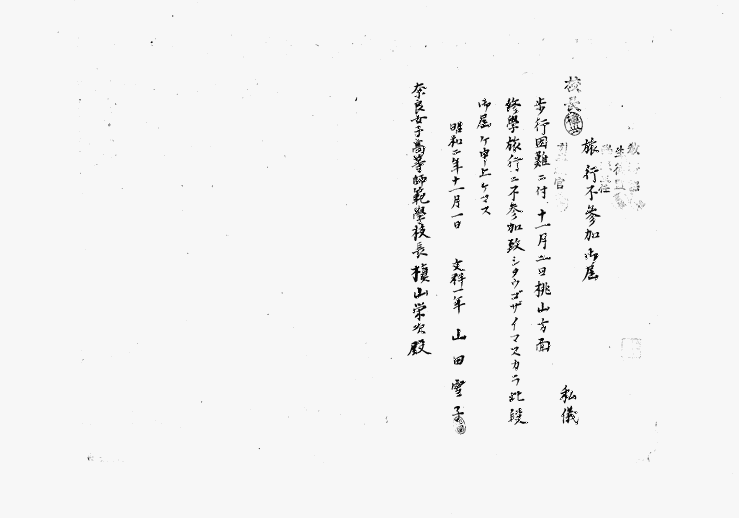 校長
旅行不参加御届
私儀
歩行困難ニ付、十一月二日桃山方面
修學旅行ニ不参加致シタウゴザイマスカラ此段
御届ケ申上ケマス
昭和二年十一月一日
文科一年 山田雪子
奈良女子高等師範學校長 槇山栄次殿